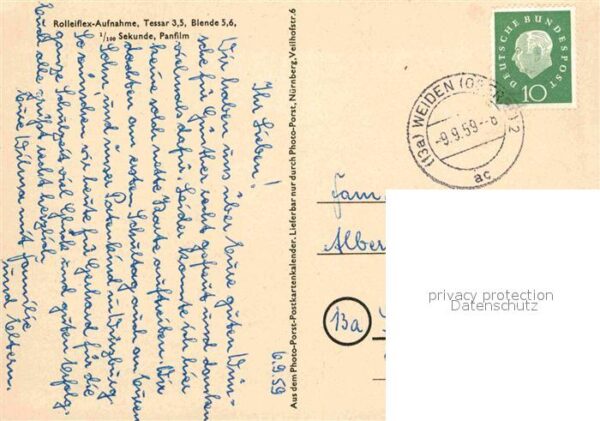 Rolleiflex-Aufnahme, Tessar 3,5, Blende 5,6,
1/100 Sekunde, Panfilm
6.9.59
Ihr Lieben!
Wir haben uns über Eure guten Wün-
sche für Günther recht gefreut und danken
vielmals dafür. Leider konnte ich hier
keine solch nette Karte auftreiben. Wir
dachten am ersten Schultag auch an Euren
Sohn und unser Patenkind in Würzburg
So wünschen wir heute für Gerhard für die
ganze Schulzeit viel Glück und guten Erfolg.
Euch alle grüßt recht herzlich
Eure Wilma mit Familie
und Eltern.
Aus dem Photo-Porst-Postkartenkalender. Lieferbar nur durch Photo-Porst, Nürnberg, Veilhofstr. 6
DEUTSCHE BUNDESPOST
10
(13a) WEIDEN 2
-9.9.59-8
ac
Fam.
Alber
13a
privacy protection
Datenschutz